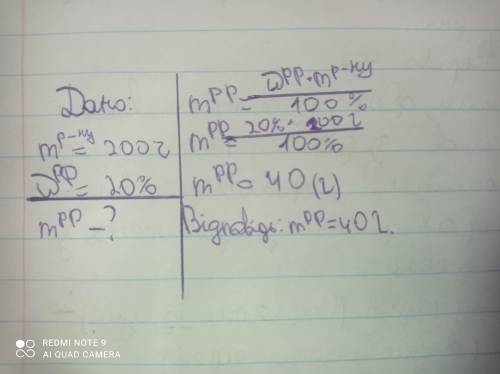 Дано:
m р-ну = 200г
W рр = 20%
m рр - ?
m рр = W рр · m р-ну / 100%
m рр = 20% · 200г / 100%
m рр = 40 (г)
Відповідь: m рр = 40г.
REDMI NOTE 9
AI QUAD CAMERA